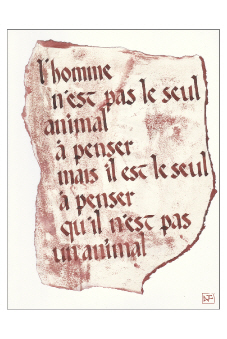 l'homme
n'est pas le seul
animal
à penser
mais il est le seul
à penser
qu'il n'est pas
un animal